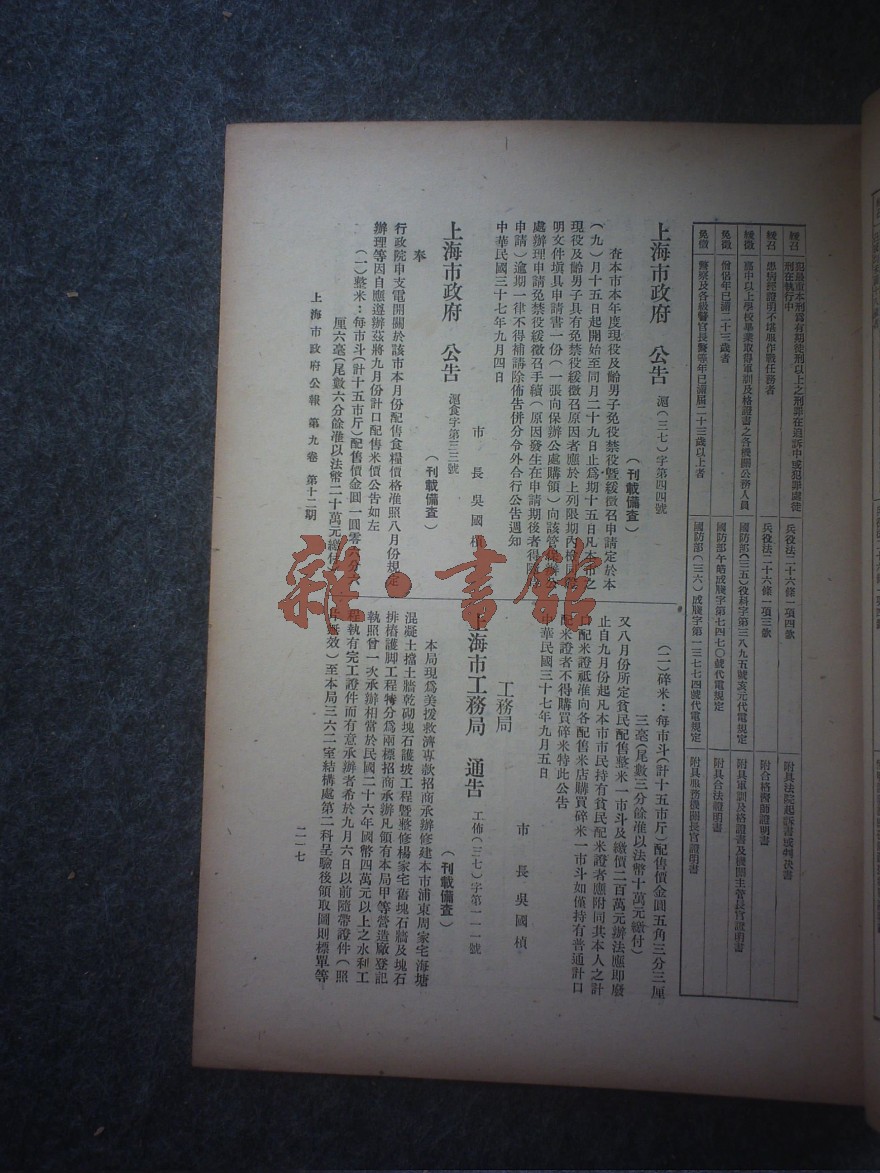 緩召
犯最重本刑為有期徒刑以上之刑罪在追訴中或犯罪處徒
刑在執行中
兵役法二十六條一項四款
附具法院起訴書或判決書
緩召
患病經證明不堪服作戰任務者
兵役法二十六條一項三款
附合格醫師證明書
緩徵
高中以上學校畢業取得軍訓及格證書之各機關公務人員
國防部(三五)役科字第三八九五號亥元代電規定
附具軍訓及格證書及機關主管長官證明書
免徵
僧侶年已滿二十三歲者
國防部午皓成賤字第七四七〇號代電規定
附具合法證明書
免徵
警察及各級警官長警等年已滿屆二十三歲以上者
國防部(三六)成賤字第一三七七四號代電規定
附具服務機關長官證明書
上海市政府 公告 滬(三七)字第四四號
(刊載備查)
查本市本年度現役及齡男子免役禁役暨緩徵召申請定於本
(九)月十五日起開始至同月二十九日止為期十五日凡本市之
現役及齡男子具有免禁役緩徵召原因者應於上列限期內檢同
明文件填具申請書一份(一張向保辦公處購領)向該管
處辦理申請免禁役緩徵召手續(原因發生在申請期後者得隨
申請)逾期一律不得補請除佈告併分令外合行公告週知
中華民國三十七年九月四日
市 長 吳國楨
上海市政府 公告 滬食字第三三號
(刊載備查)
奉
行政院申支電開關於該市本月份配售食糧價格准照八月份規定
辦理等因自應遵辦茲將九月份計口配售米價公告如左
(一)整米:每市斗(計十五市斤)配售價金圓一圓零六分六
厘六毫(尾數六分餘准以法幣二十萬元繳付)
(二)碎米:每市斗(計十五市斤)配售價金圓五角三分三厘
三毫(尾數三分餘准以法幣十萬元繳付)
又八月份所定貧民配售整米一市斗及繳價二百萬元辦法應即廢
止自九月份起凡本市市民持有貧民配米證者應附同其本人之計
口配米證祇准向各配售米店購買碎米一市斗如僅持有普通計口
配米證者不得購買碎米特此公告
中華民國三十七年九月五日
市 長 吳國楨
工務局
上海市工務局 通告 工佈(三七)字第一一一號
(刊載備查)
本局現為美援救濟專款招商承辦修建本市浦東周家宅海塘
混凝土擋土牆乾砌塊石護坡工程暨整修楊家宅舊塊石牆及塊石
排樁護脚工程特分為兩標招商承辦凡領有本局甲等營造廠登記
執照曾一次承辦相當於民國二十六年國幣四萬元以上之水利工
程執有完工證件而有意承辦者希於九月六日以前隨帶證件(照
片無效)至本局三六二室結構處第二科呈驗後領取圖則標單等
上海市政府公報 第九卷 第十二期
二一七
雜·書館